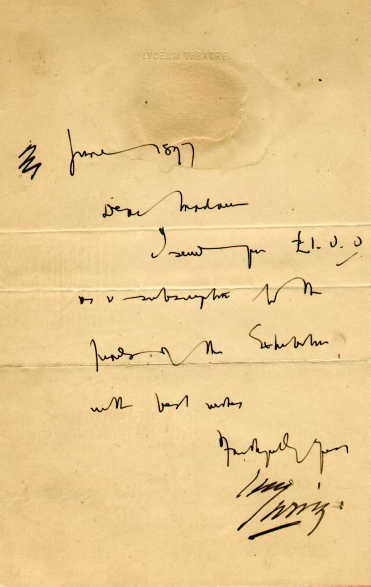 LYCEUM THEATRE
June 1897
Dear Madam
I send you £1.0.0
as a subscription to the
funds of the Exhibition,
with best wishes
Faithfully yours
Irving